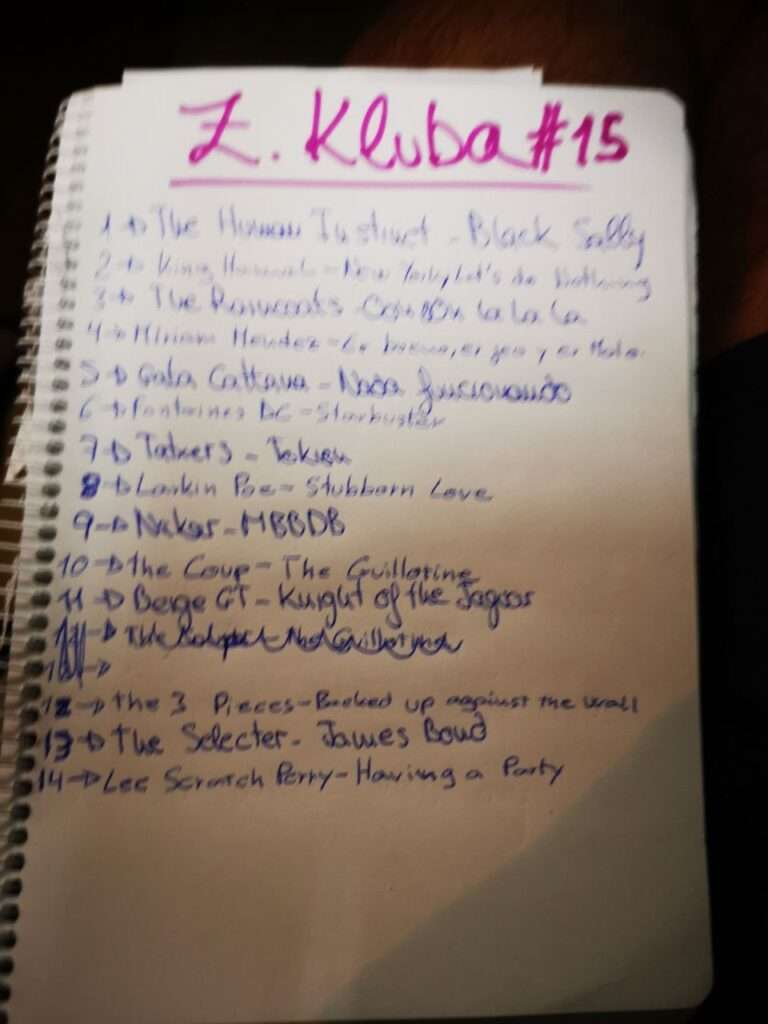 Z. Kluba #15
1 → The Human Instinct - Black Sally
2 → King Hannah - New York, Let's do Nothing
3 → The Raincoats - La La La
4 → Miriam Mendez - y
5 → Gata Cattana - Nada funcionando
6 → Fontaines DC - Starbuster
7 → Tatxers -
8 → Larkin Poe - Stubborn Love
9 → Nakar - MBBDB
10 → The Coup - The Guillotine
11 → Beige GT - Knight of the Jaguar
→ The
→
12 → The 3 Pieces - Backed up against the wall
13 → The Selecter - James Bond
14 → Lee Scratch Perry - Having a Party